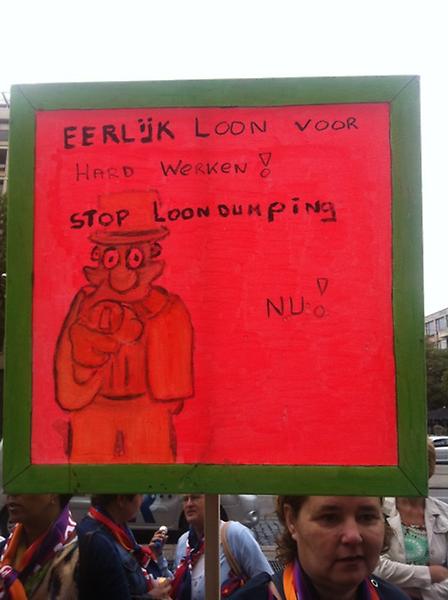 EERLIJK LOON VOOR
HARD WERKEN!
STOP LOONDUMPING
NU!